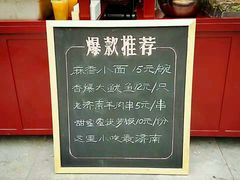 爆款推荐
麻酱小面 15元/碗
香爆大鱿鱼 12元/只
老济南羊肉串 5元/串
甜蜜蜜菠萝饭 10元/份
这里小吃最济南